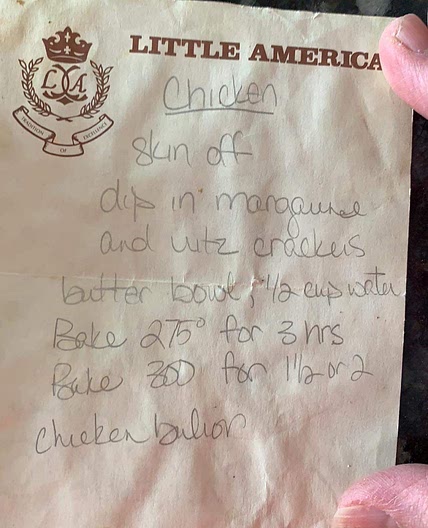 LITTLE AMERICA
LA
TRADITION OF EXCELLENCE
Chicken
skin off
dip in margaurine
and ritz crackers
butter bowl, 1/2 cup water
Bake 275° for 3 hrs
Bake 300 for 1 1/2 or 2
chicken bulion